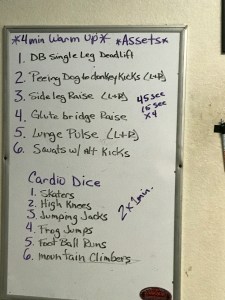 *4min Warm Up* *Assets*
1. DB Single Leg Deadlift
2. Peeing Dog to donkey Kicks (L+R)
3. Side leg Raise (L+R)
45 sec
15 sec
x4
4. Glute bridge Raise
5. Lunge Pulse (L+R)
6. Squats w/ Alt Kicks
Cardio Dice
1. Skaters
2. High Knees
3. Jumping Jacks
2x 1min.
4. Frog Jumps
5. Foot Ball Runs
6. mountain Climbers